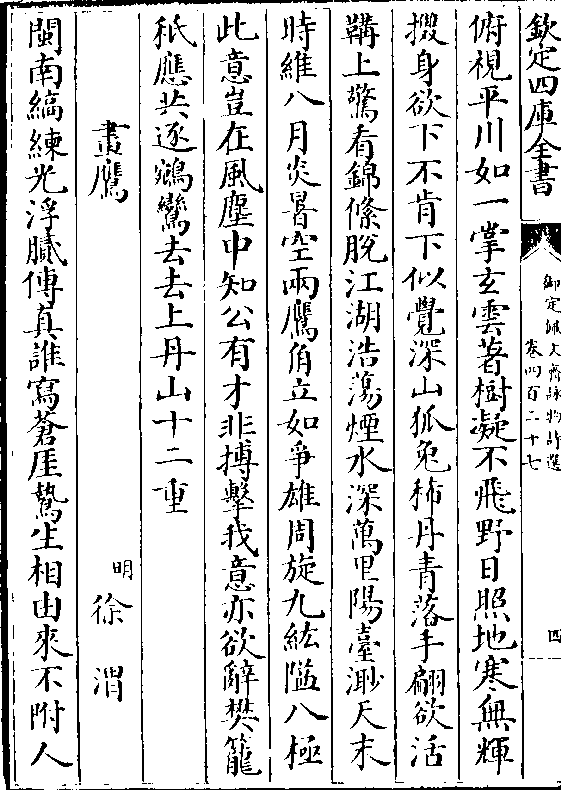 欽定四庫全書
御定佩文齋詠物詩選
卷四百二十七
四
俯視平川如一掌玄雲著樹凝不飛野日照地寒無輝
擬身欲下不肯下似覺深山狐兔稀丹青落手翩欲活
鞲上驚看錦絛脫江湖浩蕩煙水深萬里陽臺渺天末
時維八月炎暑空兩鷹角立如爭雄周旋九紘隘八極
此意豈在風塵中知公有才非搏擊我意亦欲辭樊籠
秖應共逐鵷鸞去去上丹山十二重
畫鷹
明徐渭
閩南縞練光浮膩傳真誰寫蒼厓鷙生相由來不附人